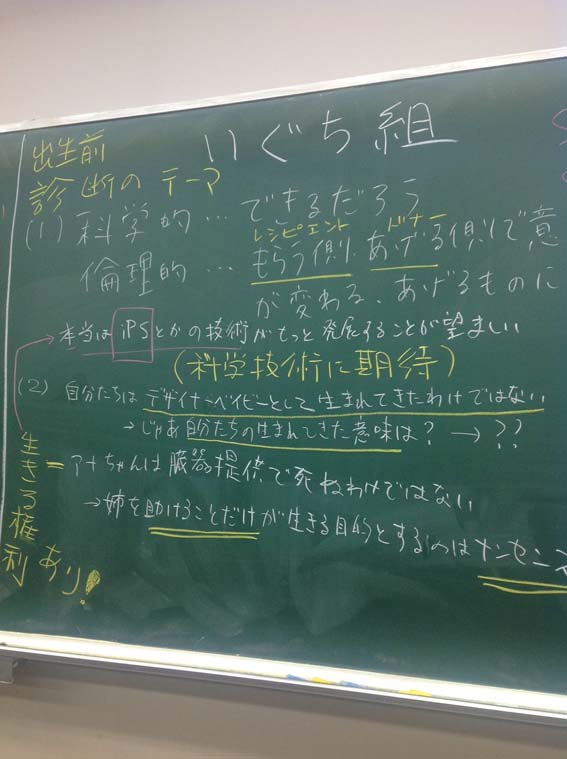 いぐち組
出生前
診断のテーマ
(1) 科学的…できるだろう
レシピエント ドナー
倫理的…もらう側、あげる側で意
が変わる、あげるものに
→本当はiPSとかの技術がもっと発展することが望ましい
(科学技術に期待)
(2) 自分たちはデザイナーベイビーとして生まれてきたわけではない
→じゃあ自分たちの生まれてきた意味は?→??
アナちゃんは臓器提供で死ぬわけではない
→姉を助けることだけが生きる目的とするのはナンセンス
生きる権利あり!